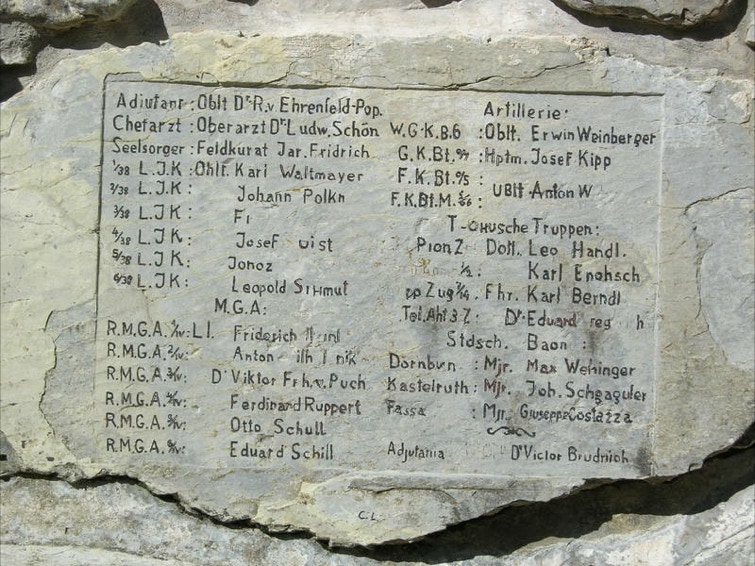 Adiutant : Oblt Dr. R. v Ehrenfeld-Pop.
Chefarzt : Oberarzt Dr. Ludw. Schön
Seelsorger : Feldkurat Jar. Fridrich
1/38 L.J.K : Oblt. Karl Waltmayer
2/38 L.J.K : Johann Polkn
3/38 L.J.K :
4/38 L.J.K : Josef
5/38 L.J.K : Jonoz
6/38 L.J.K : Leopold
M.G.A:
R.M.G.A. 1/IV: Friderich
R.M.G.A. 2/IV: Anton
R.M.G.A. 3/IV: Dr Viktor Frh. v. Puch
R.M.G.A. 4/IV: Ferdinand Ruppert
R.M.G.A. 5/IV: Otto Schull
R.M.G.A. 6/IV: Eduard Schill
Artillerie:
W.G.K.B.6 : Oblt. Erwin Weinberger
G.K.Bt. : Hptm. Josef Kipp
F.K.Bt. :
F.K.Bt.M. : Anton W
Truppen:
Pion Z Leo Handl.
1/2 : Karl Enohsch
Zug : Fhr. Karl Berndl
Tel. Aht 3 Z : Dr Eduard
Stdsch. Baon :
Dornbirn : Mjr. Max Wehinger
Kastelruth : Mjr. Joh. Schgaguler
Fassa : Mjr. Giuseppe Costazza
Adjutania Dr Victor Brudnioh
C.L.